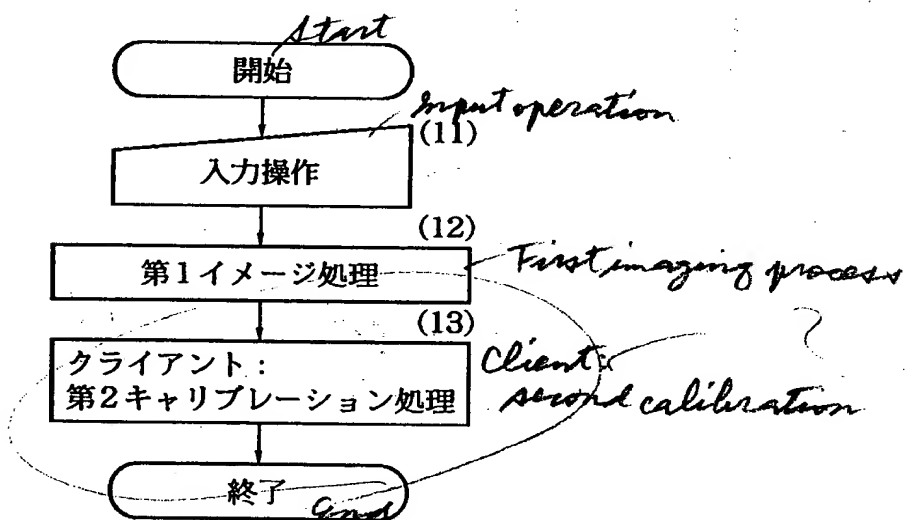 Start
開始
Input operation
(11)
入力操作
(12)
第1イメージ処理
First imaging process
(13)
クライアント：
第2キャリブレーション処理
Client:
second calibration
?
終了
End